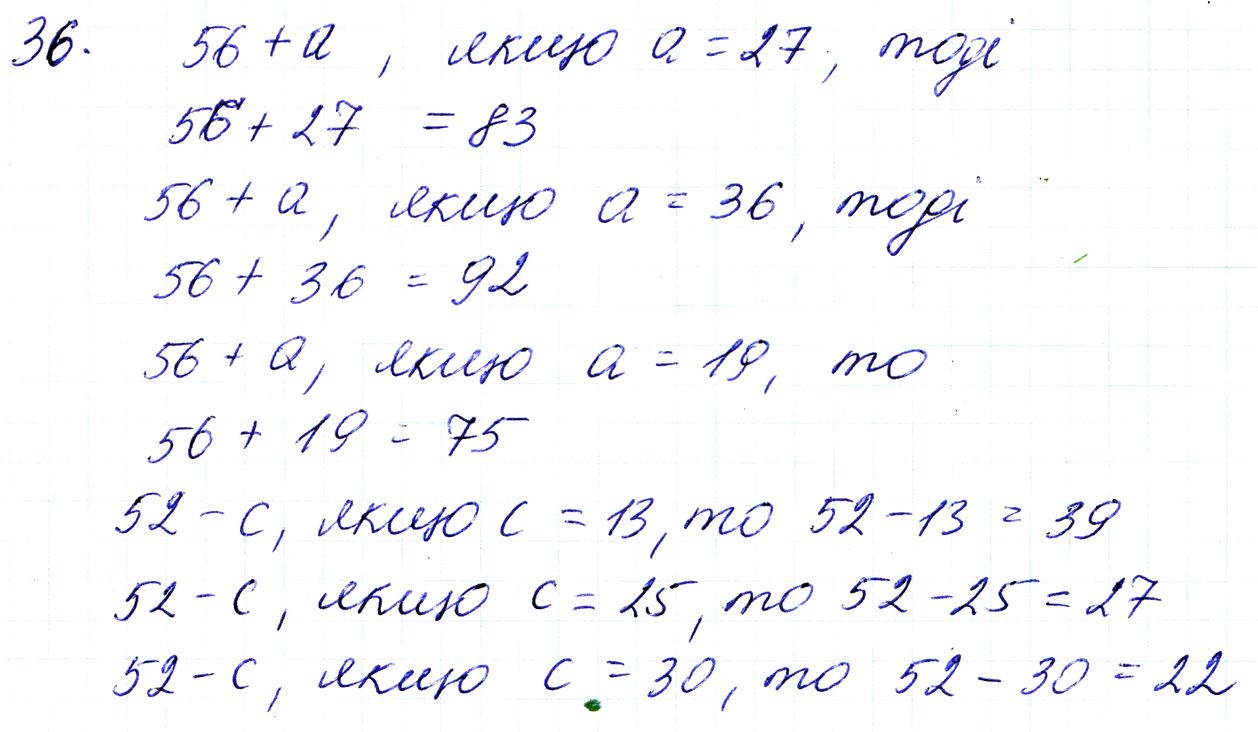 36. 56 + a, якщо a = 27, тоді
56 + 27 = 83
56 + a, якщо a = 36, тоді
56 + 36 = 92
56 + a, якщо a = 19, то
56 + 19 = 75
52 - c, якщо c = 13, то 52 - 13 = 39
52 - c, якщо c = 25, то 52 - 25 = 27
52 - c, якщо c = 30, то 52 - 30 = 22